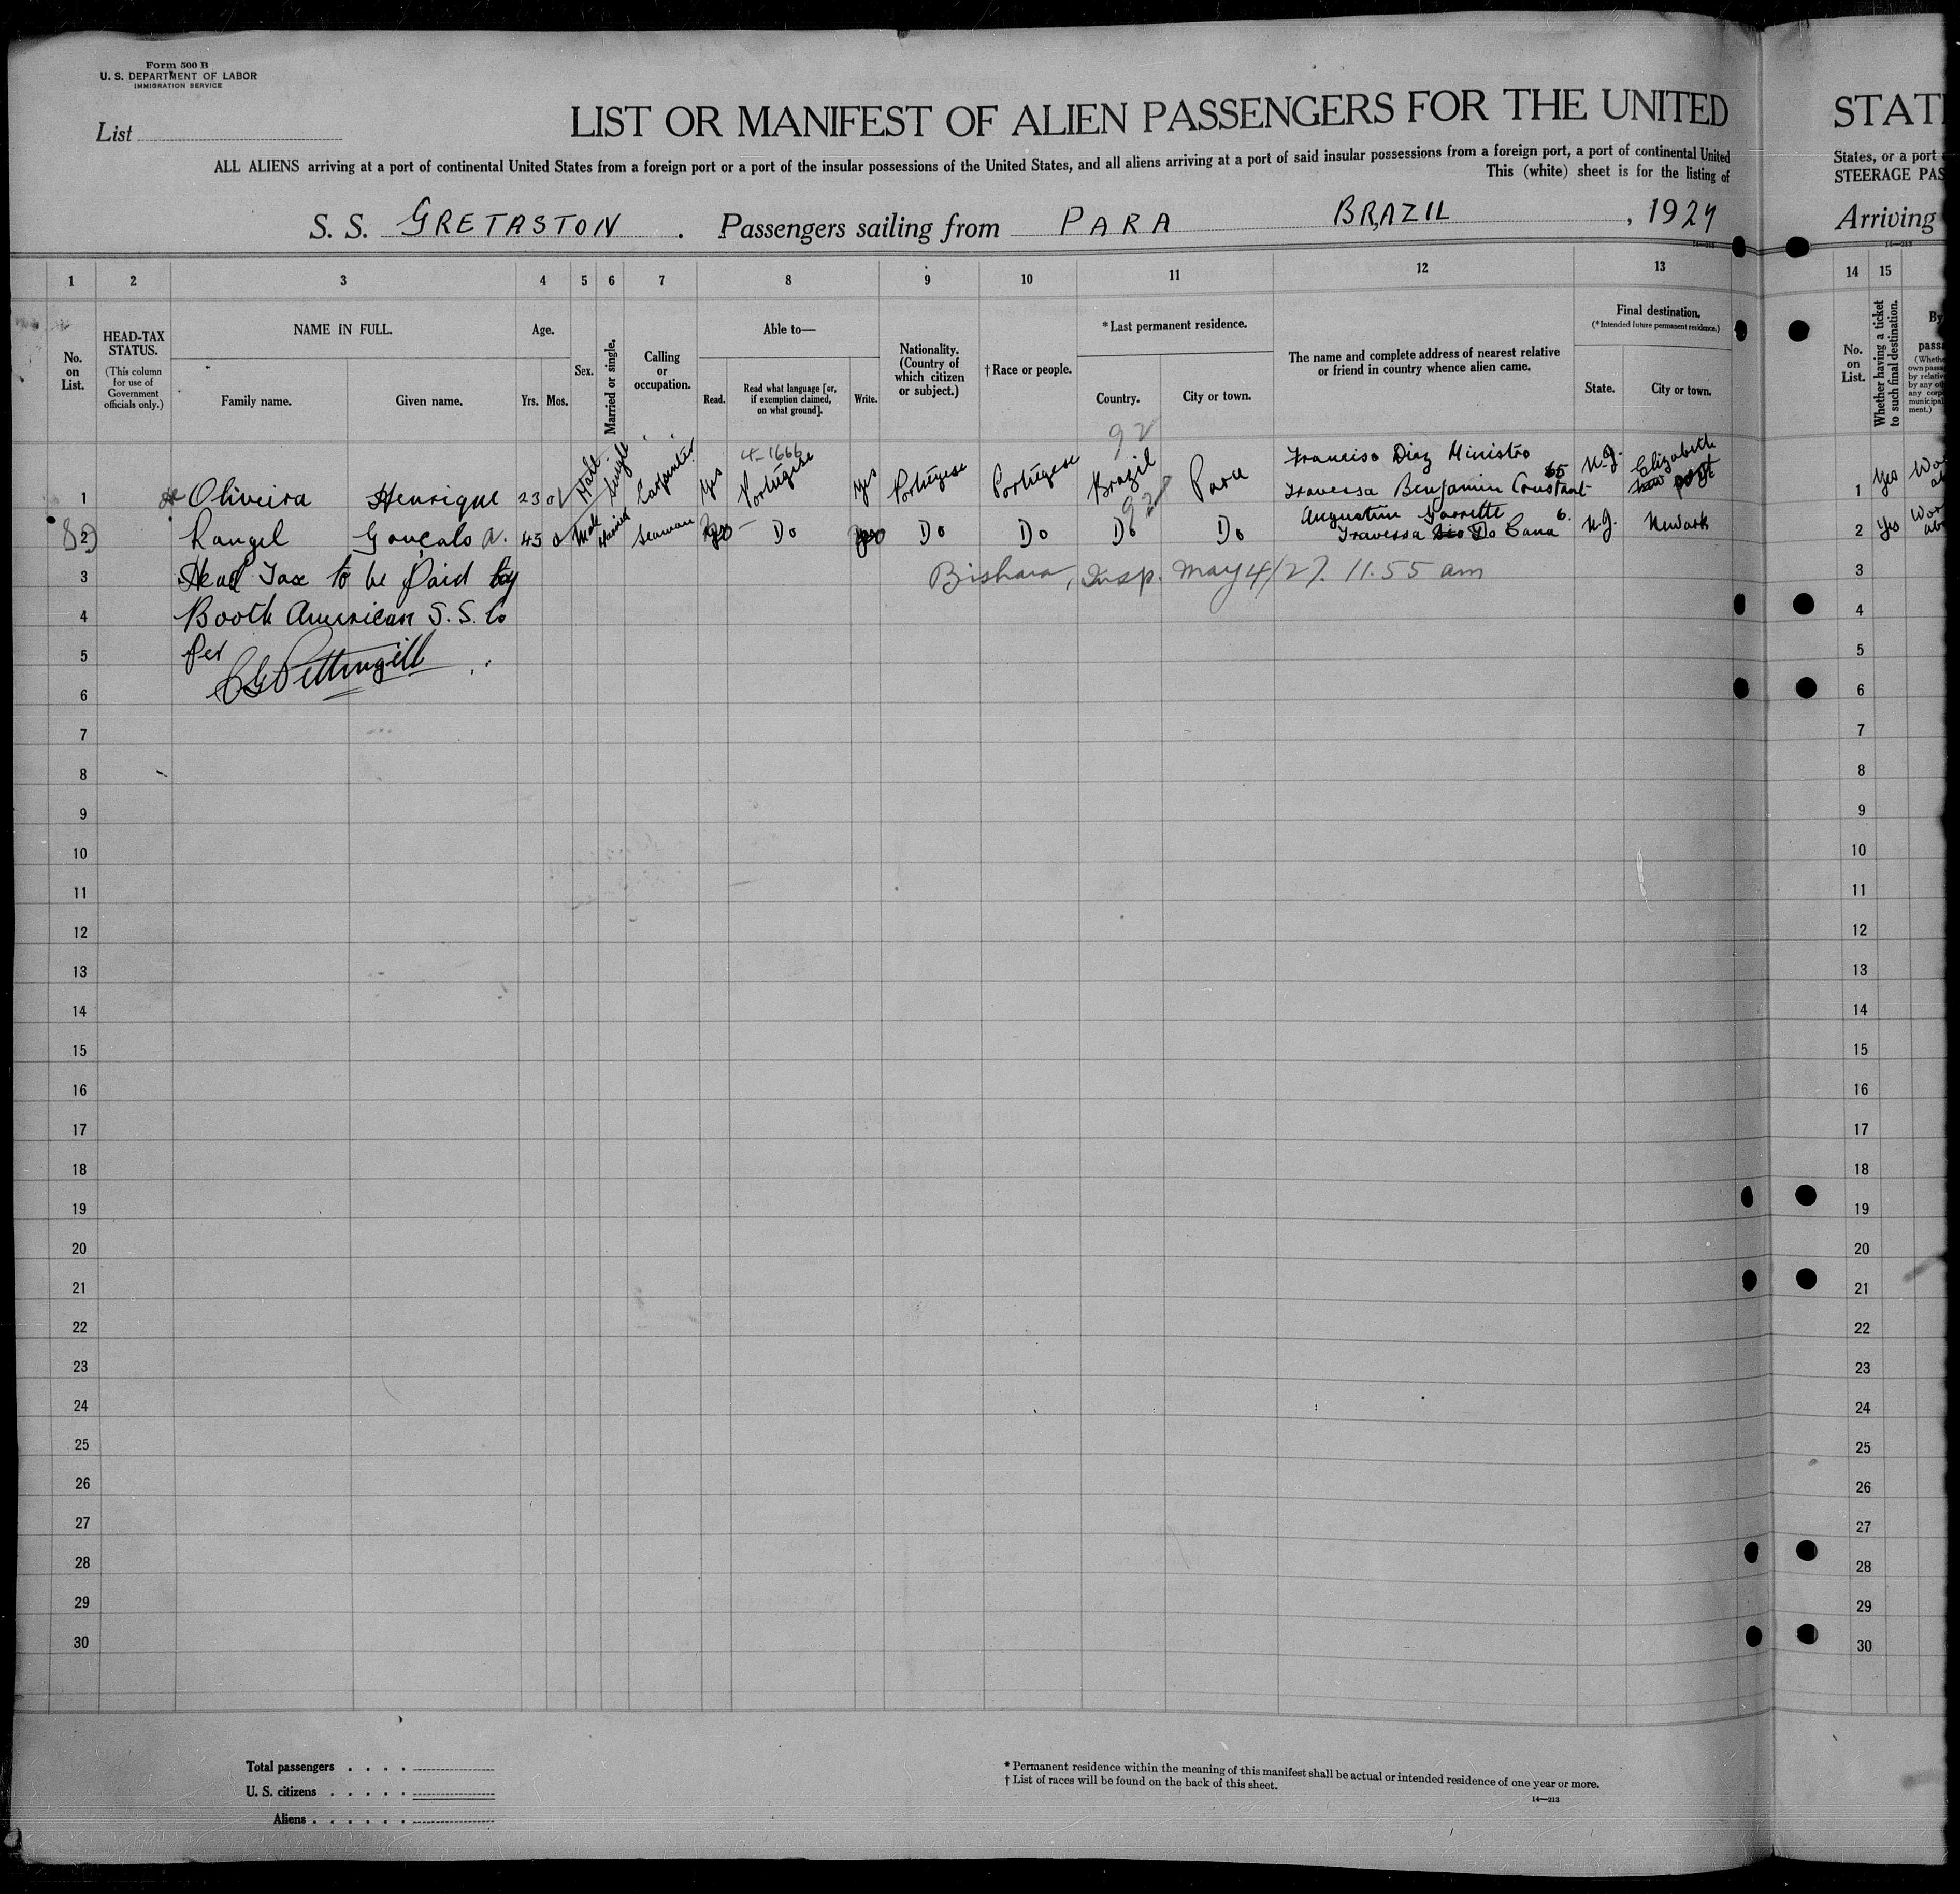 Form 500 B
U. S. DEPARTMENT OF LABOR
IMMIGRATION SERVICE
List
LIST OR MANIFEST OF ALIEN PASSENGERS FOR THE UNITED
ALL ALIENS arriving at a port of continental United States from a foreign port or a port of the insular possessions of the United States, and all aliens arriving at a port of said insular possessions from a foreign port, a port of continental United
This (white) sheet is for the listing of
S. S. GRETASTON . Passengers sailing from PARA BRAZIL , 1927
STAT
States, or a port
STEERAGE PAS
Arriving
1 2 3 4 5 6 7 8 9 10 11 12 13 14 15
No. on List.
HEAD-TAX STATUS.
(This column for use of Government officials only.)
NAME IN FULL.
Family name.
Given name.
Age.
Yrs.
Mos.
Sex.
Married or single.
Calling or occupation.
Able to—
Read.
Read what language [or, if exemption claimed, on what ground].
Write.
Nationality. (Country of which citizen or subject.)
† Race or people.
*Last permanent residence.
Country.
City or town.
The name and complete address of nearest relative or friend in country whence alien came.
Final destination.
(*Intended future permanent residence.)
State.
City or town.
No. on List.
Whether having a ticket to such final destination.
By
92
4-1666
Franciso Diaz Ministro
1 Oliveira Henrique 23 Male Single Carpenter Yes Portugese Yes Portugese Portugese Brazil Para Travessa Benjamin Constant 65 N.J. Elizabeth port 1 Yes
927
Augustine
2 Rangel Gonçalo A. 45 Male Married Seaman Yes Do Yes Do Do Do Do Travessa Do Cana 6. N.J. Newark 2 Yes
3 Head Tax to be Paid by Bishara, Insp. May 4/27. 11.55 am 3
4 Booth American S. S. Co 4
5 Per 5
CG Pettingill
6 6
7 7
8 8
9 9
10 10
11 11
12 12
13 13
14 14
15 15
16 16
17 17
18 18
19 19
20 20
21 21
22 22
23 23
24 24
25 25
26 26
27 27
28 28
29 29
30 30
Total passengers
U. S. citizens
Aliens
* Permanent residence within the meaning of this manifest shall be actual or intended residence of one year or more.
† List of races will be found on the back of this sheet.
14—213